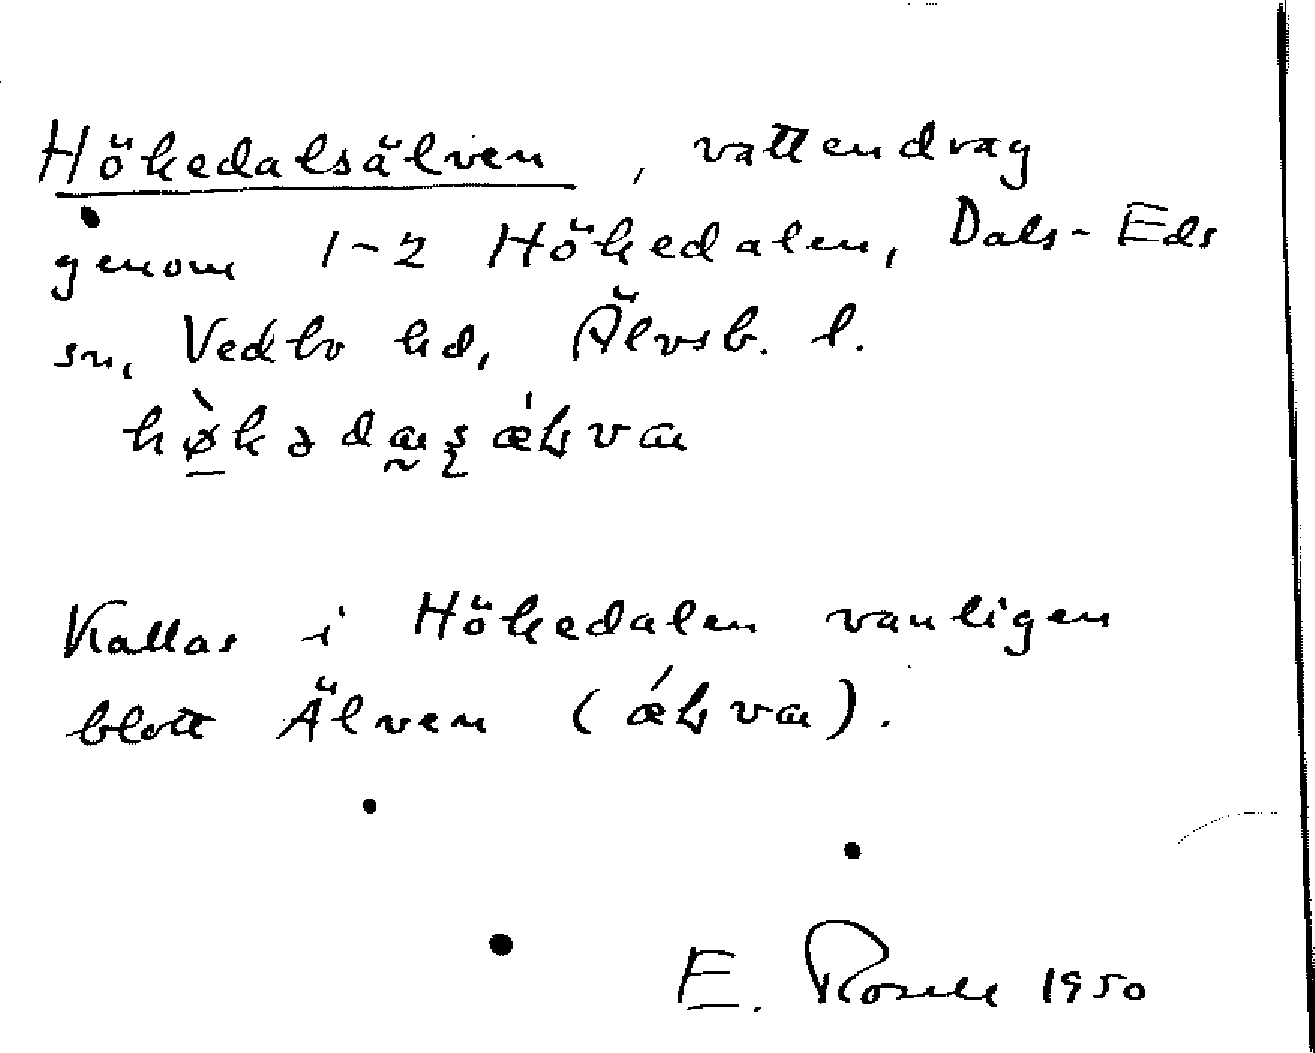 Hökedalsälven, vattendrag
genom 1-2 Hökedalen, Dals-Eds
sn, Vedbo hd, Älvsb. l.
Kallas i Hökedalen vanligen
blott Älven
E. Rosell 1950